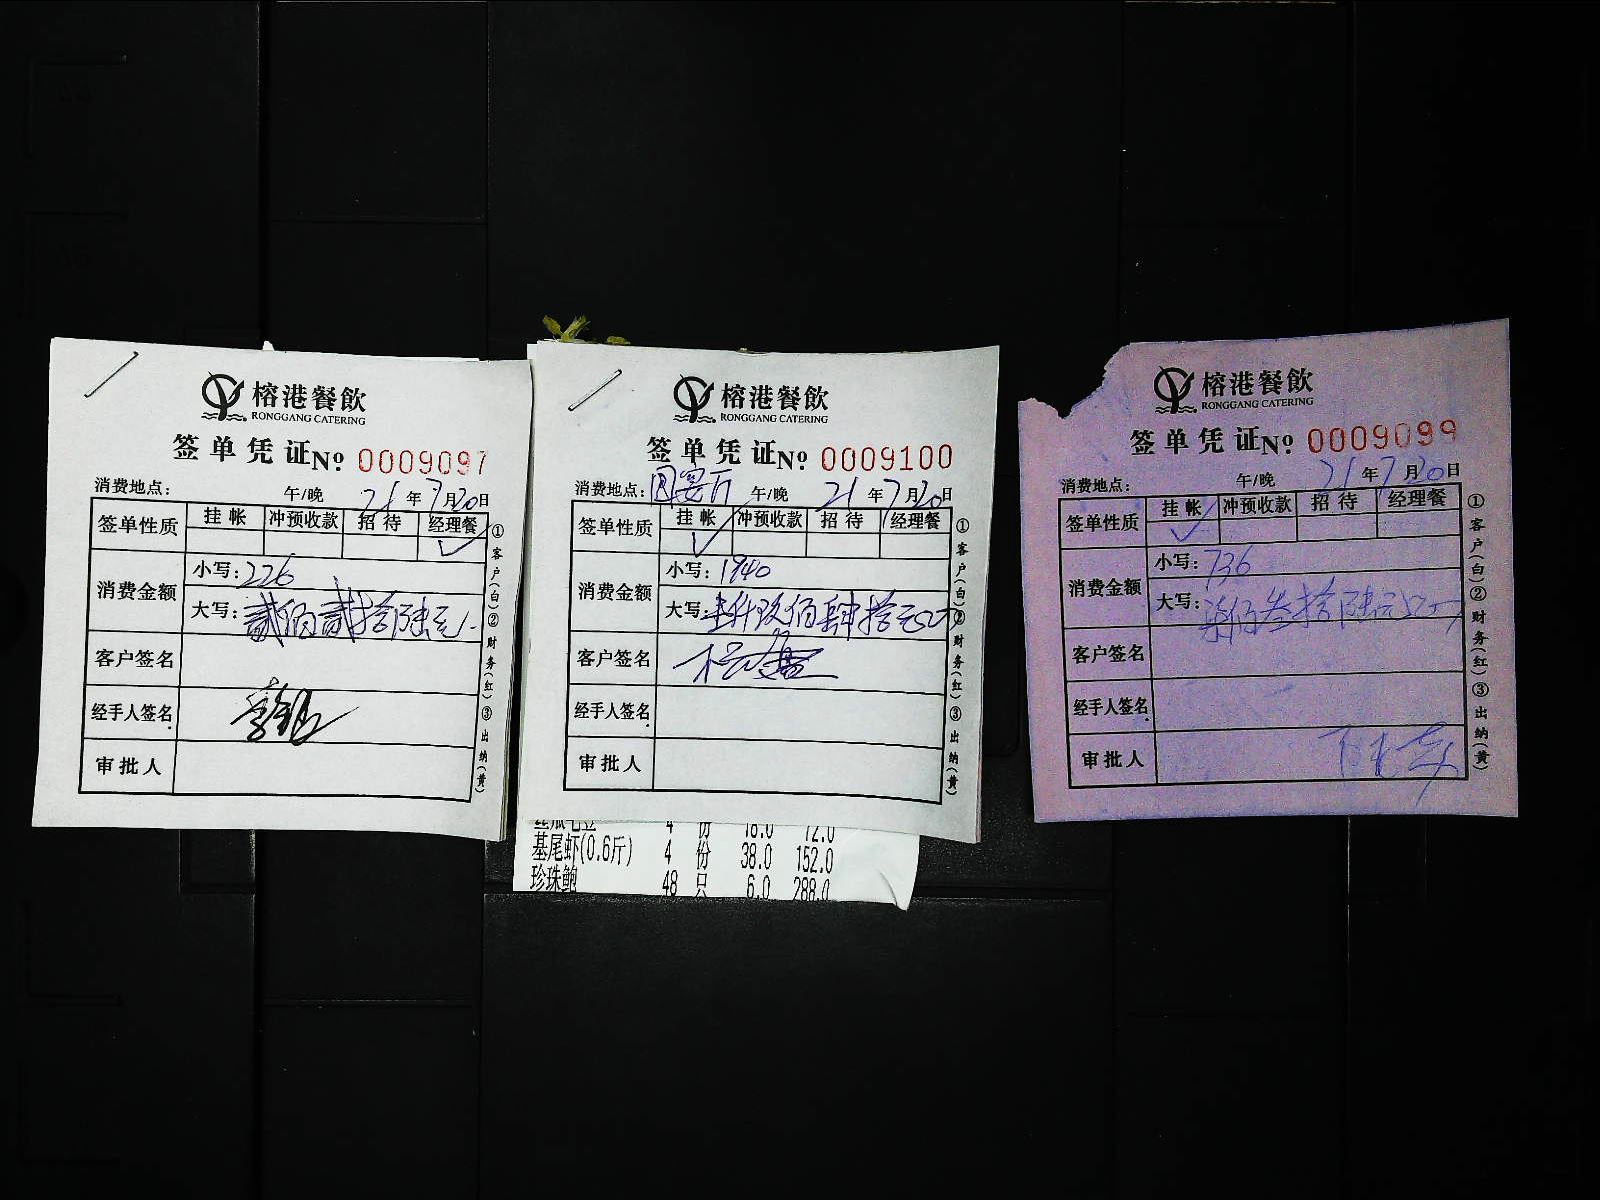 榕港餐飲
RONGGANG CATERING
签单凭证 No 0009097
消费地点: 午/晚 21年7月20日
签单性质 挂帐 冲预收款 招待 经理餐
✓
消费金额 小写: 226
大写: 贰佰贰拾陆元
客户签名
经手人签名
审批人
①客户(白)②财务(红)③出纳(黄)
榕港餐飲
RONGGANG CATERING
签单凭证 No 0009100
消费地点: 午/晚 21年7月20日
签单性质 挂帐 冲预收款 招待 经理餐
✓
消费金额 小写: 1940
大写: 壹仟玖佰肆拾元
客户签名
经手人签名
审批人
①客户(白)②财务(红)③出纳(黄)
4 份 18.0 72.0
基尾虾(0.6斤) 4 份 38.0 152.0
珍珠鲍 48 只 6.0 288.0
榕港餐飲
RONGGANG CATERING
签单凭证 No 0009099
消费地点: 午/晚 21年7月20日
签单性质 挂帐 冲预收款 招待 经理餐
✓
消费金额 小写: 736
大写: 柒佰叁拾陆元
客户签名
经手人签名
审批人
①客户(白)②财务(红)③出纳(黄)